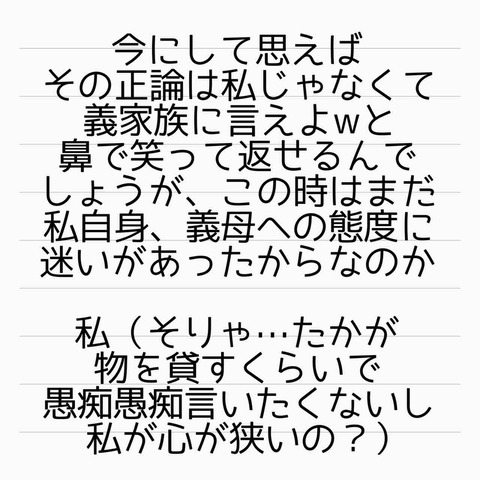 今にして思えば
その正論は私じゃなくて
義家族に言えよwと
鼻で笑って返せるんで
しょうが、この時はまだ
私自身、義母への態度に
迷いがあったからなのか
私（そりゃ…たかが
物を貸すくらいで
愚痴愚痴言いたくないし
私が心が狭いの？）